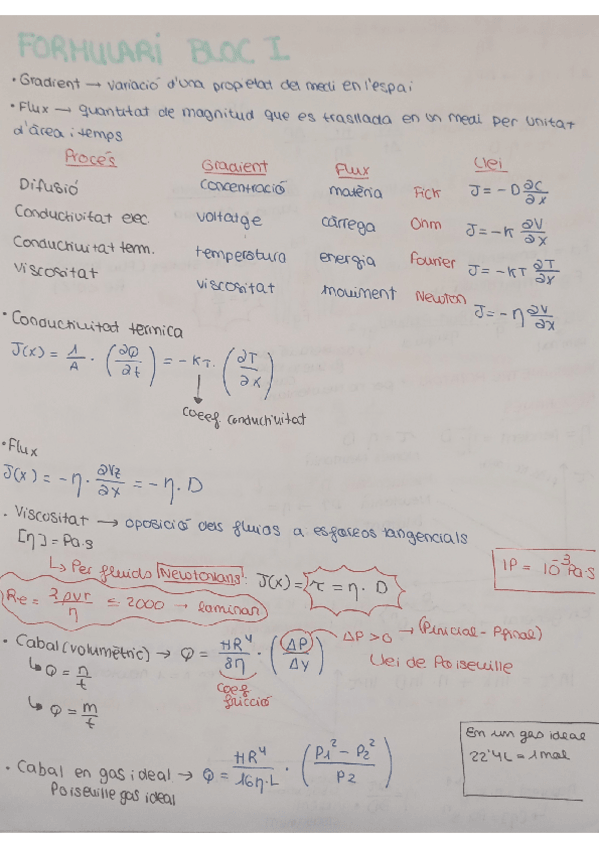 FORMULARI BLOC I
• Gradient → variació d'una propietat del medi en l'espai
• Flux → quantitat de magnitud que es trasllada en un medi per unitat
d'àrea i temps
Procés Gradient Flux Llei
Difusió concentració matèria Fick J = -D ∂C/∂x
Conductivitat elec. voltatge càrrega Ohm J = -K ∂V/∂x
Conductivitat term. temperatura energia Fourier J = -KT ∂T/∂x
Viscositat viscositat moviment Newton J = -η ∂V/∂x
• Conductivitat tèrmica
J(x) = 1/A · (∂Q/∂t) = -KT · (∂T/∂x)
coeef conductivitat
• Flux
J(x) = -η · ∂Vz/∂x = -η · D
• Viscositat → oposició dels fluids a esforços tangencials
[η] = Pa·s
↳ Per fluids Newtonians: J(x) = τ = η · D
1P = 10⁻³ Pa·s
Re = 2ρvr/η ≤ 2000 → laminar
• Cabal (volumètric) → Q = πR⁴/8η · (ΔP/Δy) ΔP > 0 → (Pinicial - Pfinal)
Llei de Poiseuille
coef fricció
↳ Q = n/t
↳ Q = m/t
En un gas ideal
22'4L = 1mol
• Cabal en gas ideal → Q = πR⁴/16η·L · (P1² - P2²/P2)
Poiseuille gas ideal